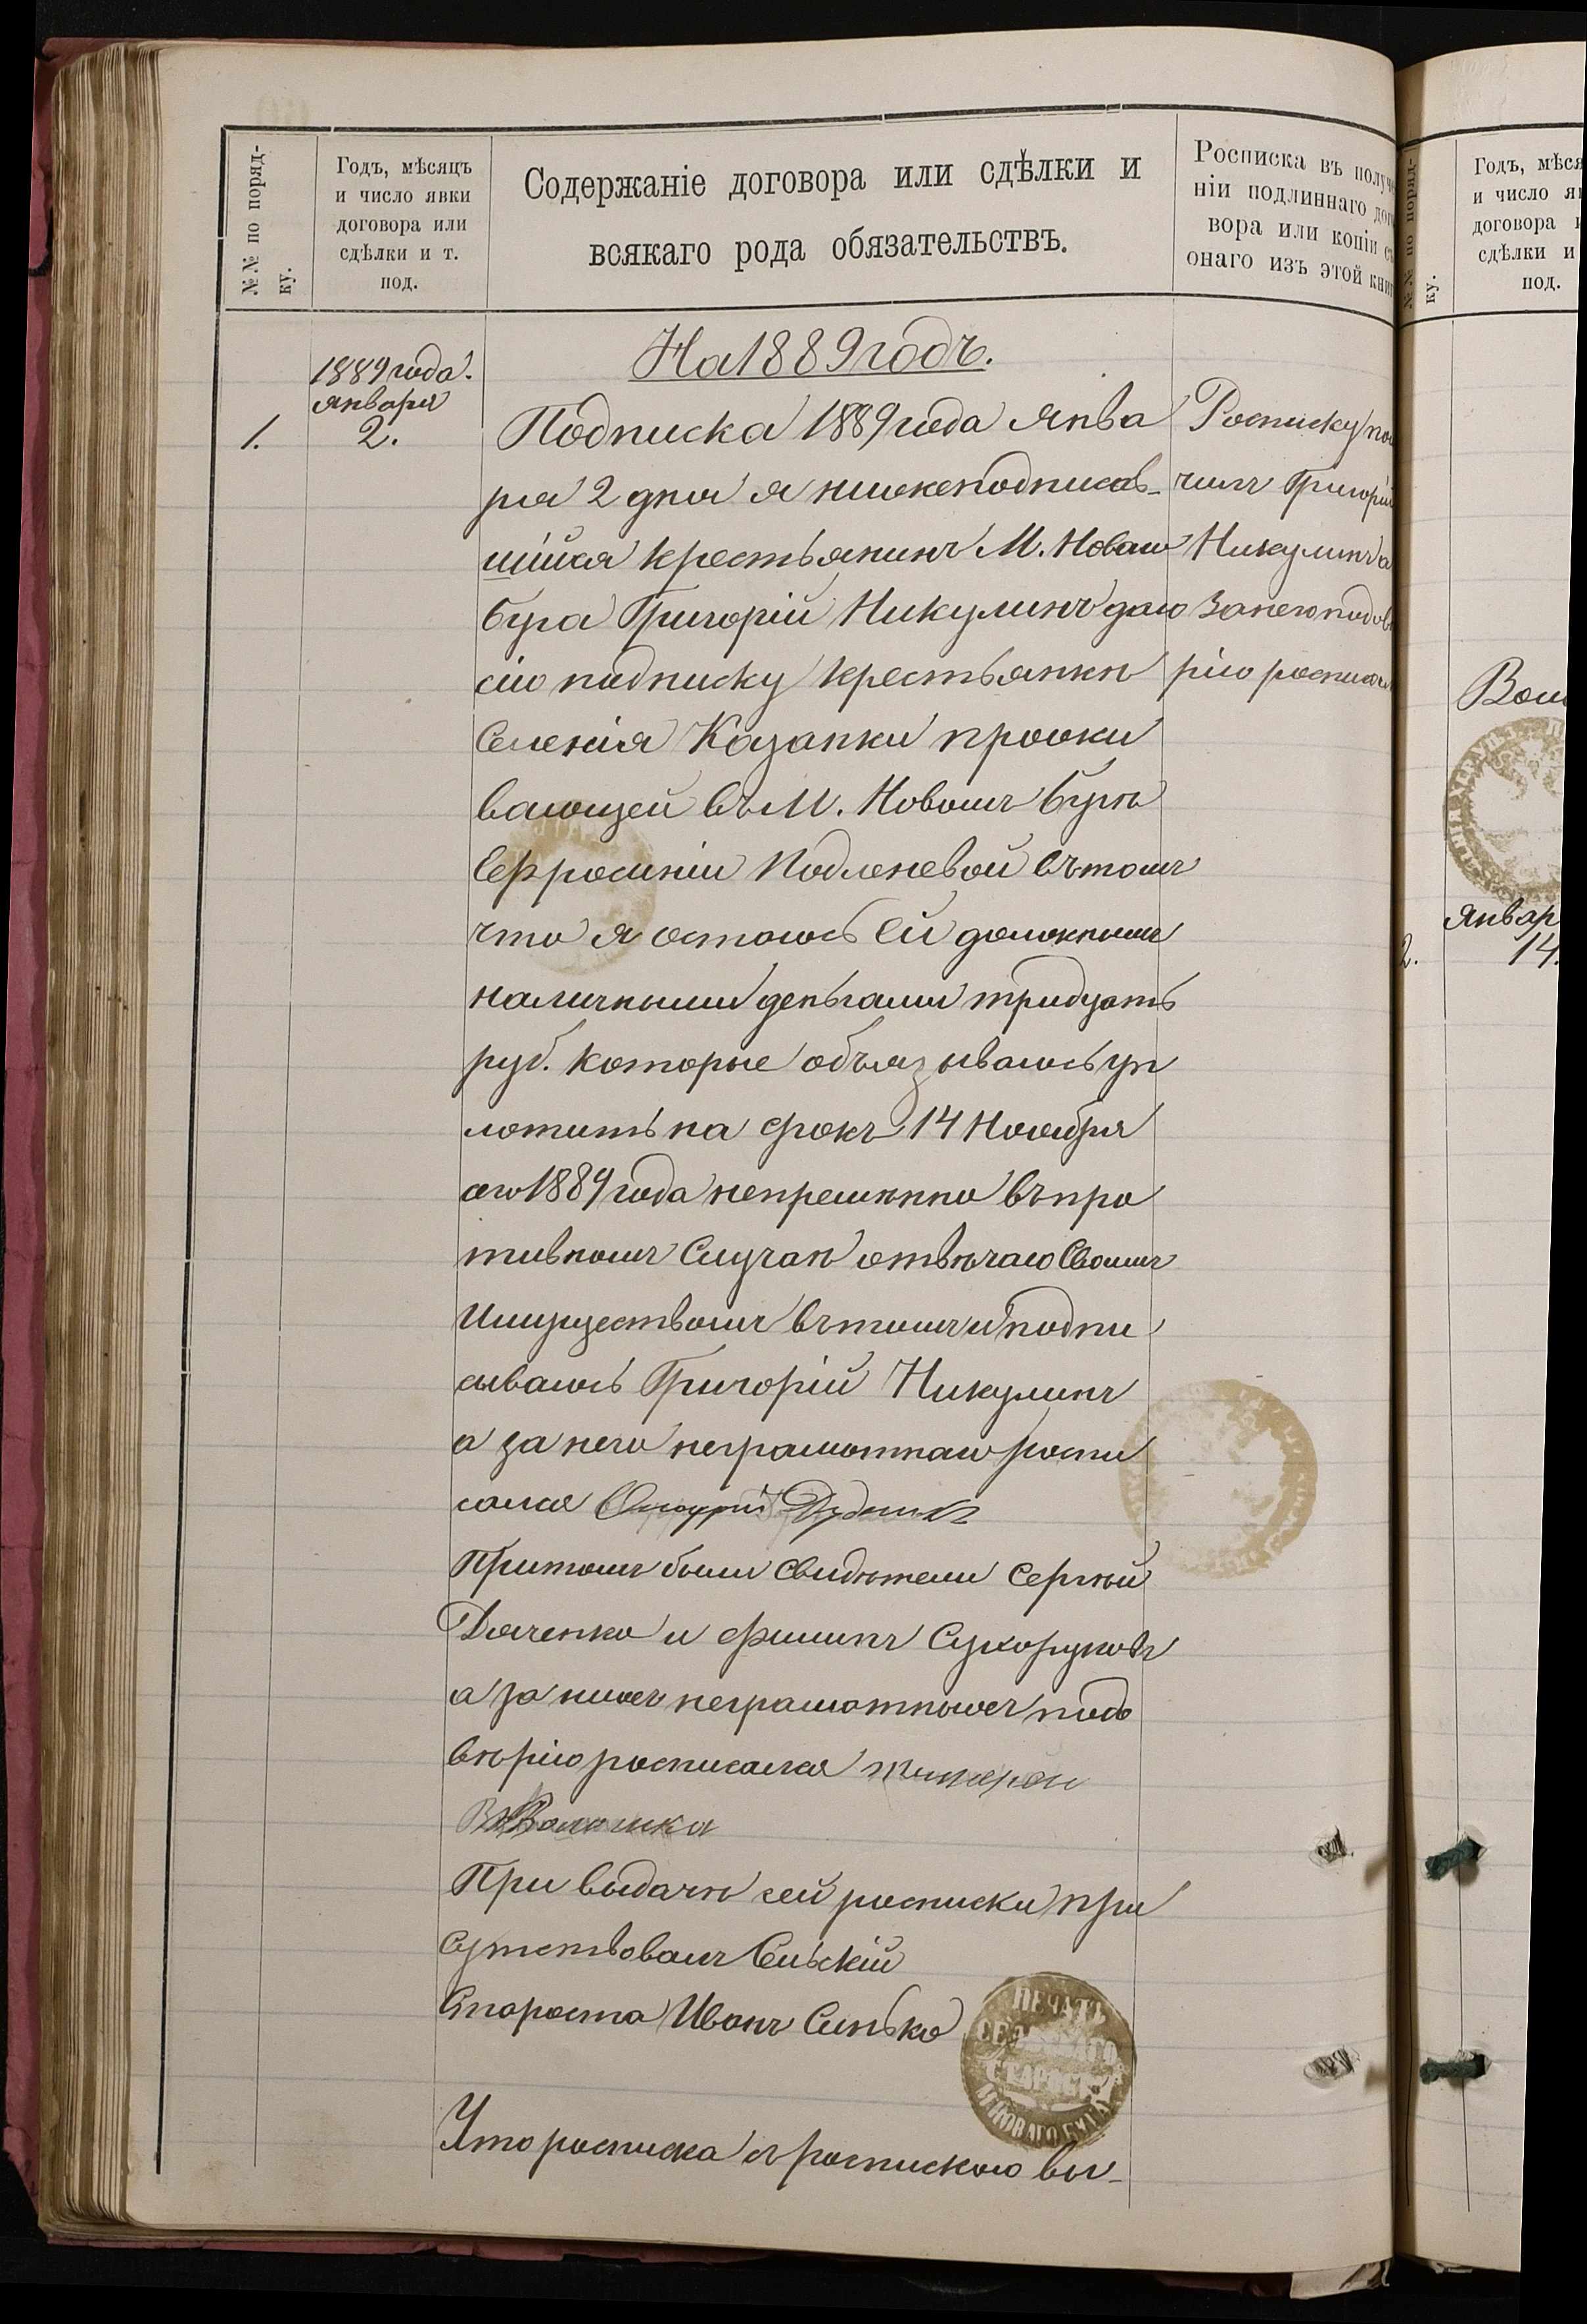 №№ по поряд-
ку.
Годъ, мѣсяцъ
и число явки
договора или
сдѣлки и т.
под.
Содержаніе договора или сдѣлки и
всякаго рода обязательствъ.
Росписка въ получе
ніи подлиннаго дого
вора или копіи съ
онаго изъ этой книг
На 1889 годъ.
1.
1889 года.
января
2.
Подписка 1889 года Янва
ря 2 дня я нижеподписав-
шійся крестьянинъ М. Новаго
Буга Григорій Никулинъ даю
сію подписку крестьянкѣ
Селенія Казанки прожи
вающей въ М. Новомъ Бугѣ
Ефросиніи Подленевой въ томъ
что я остаюсь ей должнымъ
наличными деньгами тридцать
руб. которые объязываюсь уп
лотить на срокъ 14 Ноября
сего 1889 года непремѣнно въ про
тивномъ Случаѣ отвѣчаю Своимъ
Имуществомъ въ томъ и подпи
сываюсь Григорій Никулинъ
а за него неграмотнаго роспи
сался Онофрій Дудникъ
Притомъ были свидѣтели Сергѣй
Дяченко и Филипъ Сухоруковъ
а за нихъ неграмотныхъ подо
вѣрію росписался
Волошка
При выдачѣ сей росписки при
сутствовалъ Сельскій
Староста Иванъ Синько
Что росписка съ роспискою вы-
Росписку по
чилъ Григорій
Никулинъ а
за него подов
рію росписал
ПЕЧАТЬ
СЕЛЬСКАГО
СТАРОСТЫ
М. НОВАГО БУГА
№№ по поряд-
ку.
Годъ, мѣся
и число яв
договора и
сдѣлки и
под.
2.
Январ
14.